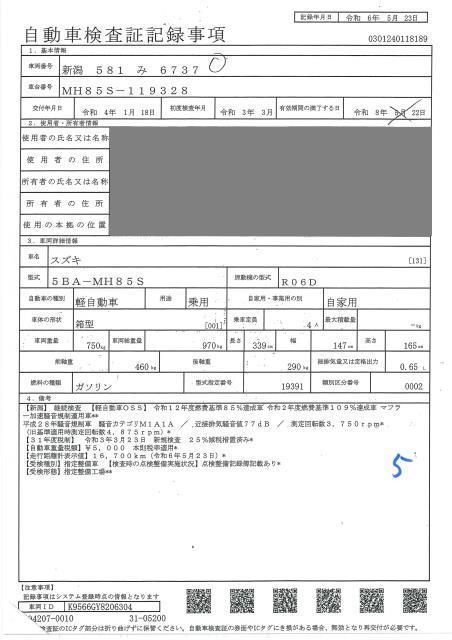 記録年月日 令和 6年 5月 23日
自動車検査証記録事項
0301240118189
1. 基本情報
車両番号 新潟 581 み 6737
車台番号 MH85S-119328
交付年月日 令和 4年 1月 18日 初度検査年月 令和 3年 3月 有効期間の満了する日 令和 8年 5月 22日
2. 使用者・所有者情報
使用者の氏名又は名称
使用者の住所
所有者の氏名又は名称
所有者の住所
使用の本拠の位置
3. 車両詳細情報
車名 スズキ [131]
型式 5BA-MH85S 原動機の型式 R06D
自動車の種別 軽自動車 用途 乗用 自家用・事業用の別 自家用
車体の形状 箱型 [001] 乗車定員 4人 最大積載量 -kg
車両重量 750kg 車両総重量 970kg 長さ 339cm 幅 147cm 高さ 165cm
前軸重 460kg 後軸重 290kg 総排気量又は定格出力 0.65 L
燃料の種類 ガソリン 型式指定番号 19391 類別区分番号 0002
4. 備考
【新潟】 継続検査 【軽自動車OSS】 令和12年度燃費基準85%達成車 令和2年度燃費基準109%達成車 マフラ
ー加速騒音規制適用車**
平成28年騒音規制車 騒音カテゴリM1A1A / 近接排気騒音値77dB / 測定回転数3,750rpm*
(旧基準適用時測定回転数4,875rpm)*
【31年度税制】 令和3年3月23日 新規検査 25%減税措置済み*
【自動車重量税額】¥5,000 本則税率適用*
【走行距離計表示値】16,700km(令和6年5月23日)*
【受検種別】指定整備車 【検査時の点検整備実施状況】点検整備記録簿記載あり*
【受検形態】指定整備工場**
5
【注意事項】
記録事項はシステム登録時点の情報となります
車両ID K9566GY8206304
04207-0010 31-05200
検査証のICタグ部分は折り曲げずに保管ください。自動車検査証の券面やICタグにき損がある場合、無効となり再交付が必要です。